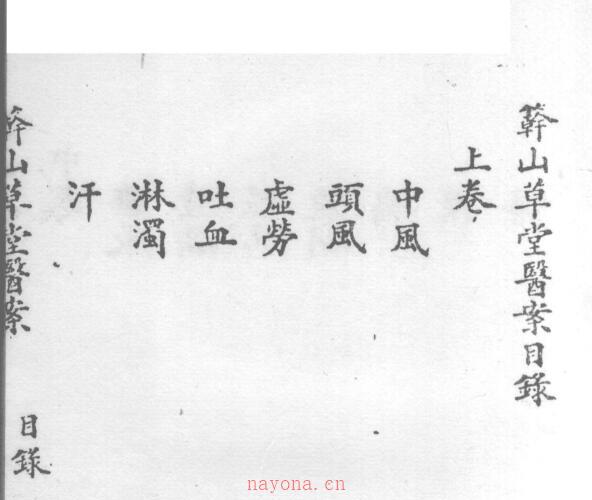 簳山草堂醫案目錄
上卷
中風
頭風
虛勞
吐血
淋濁
汗
簳山草堂醫案
目錄
nayona.cn